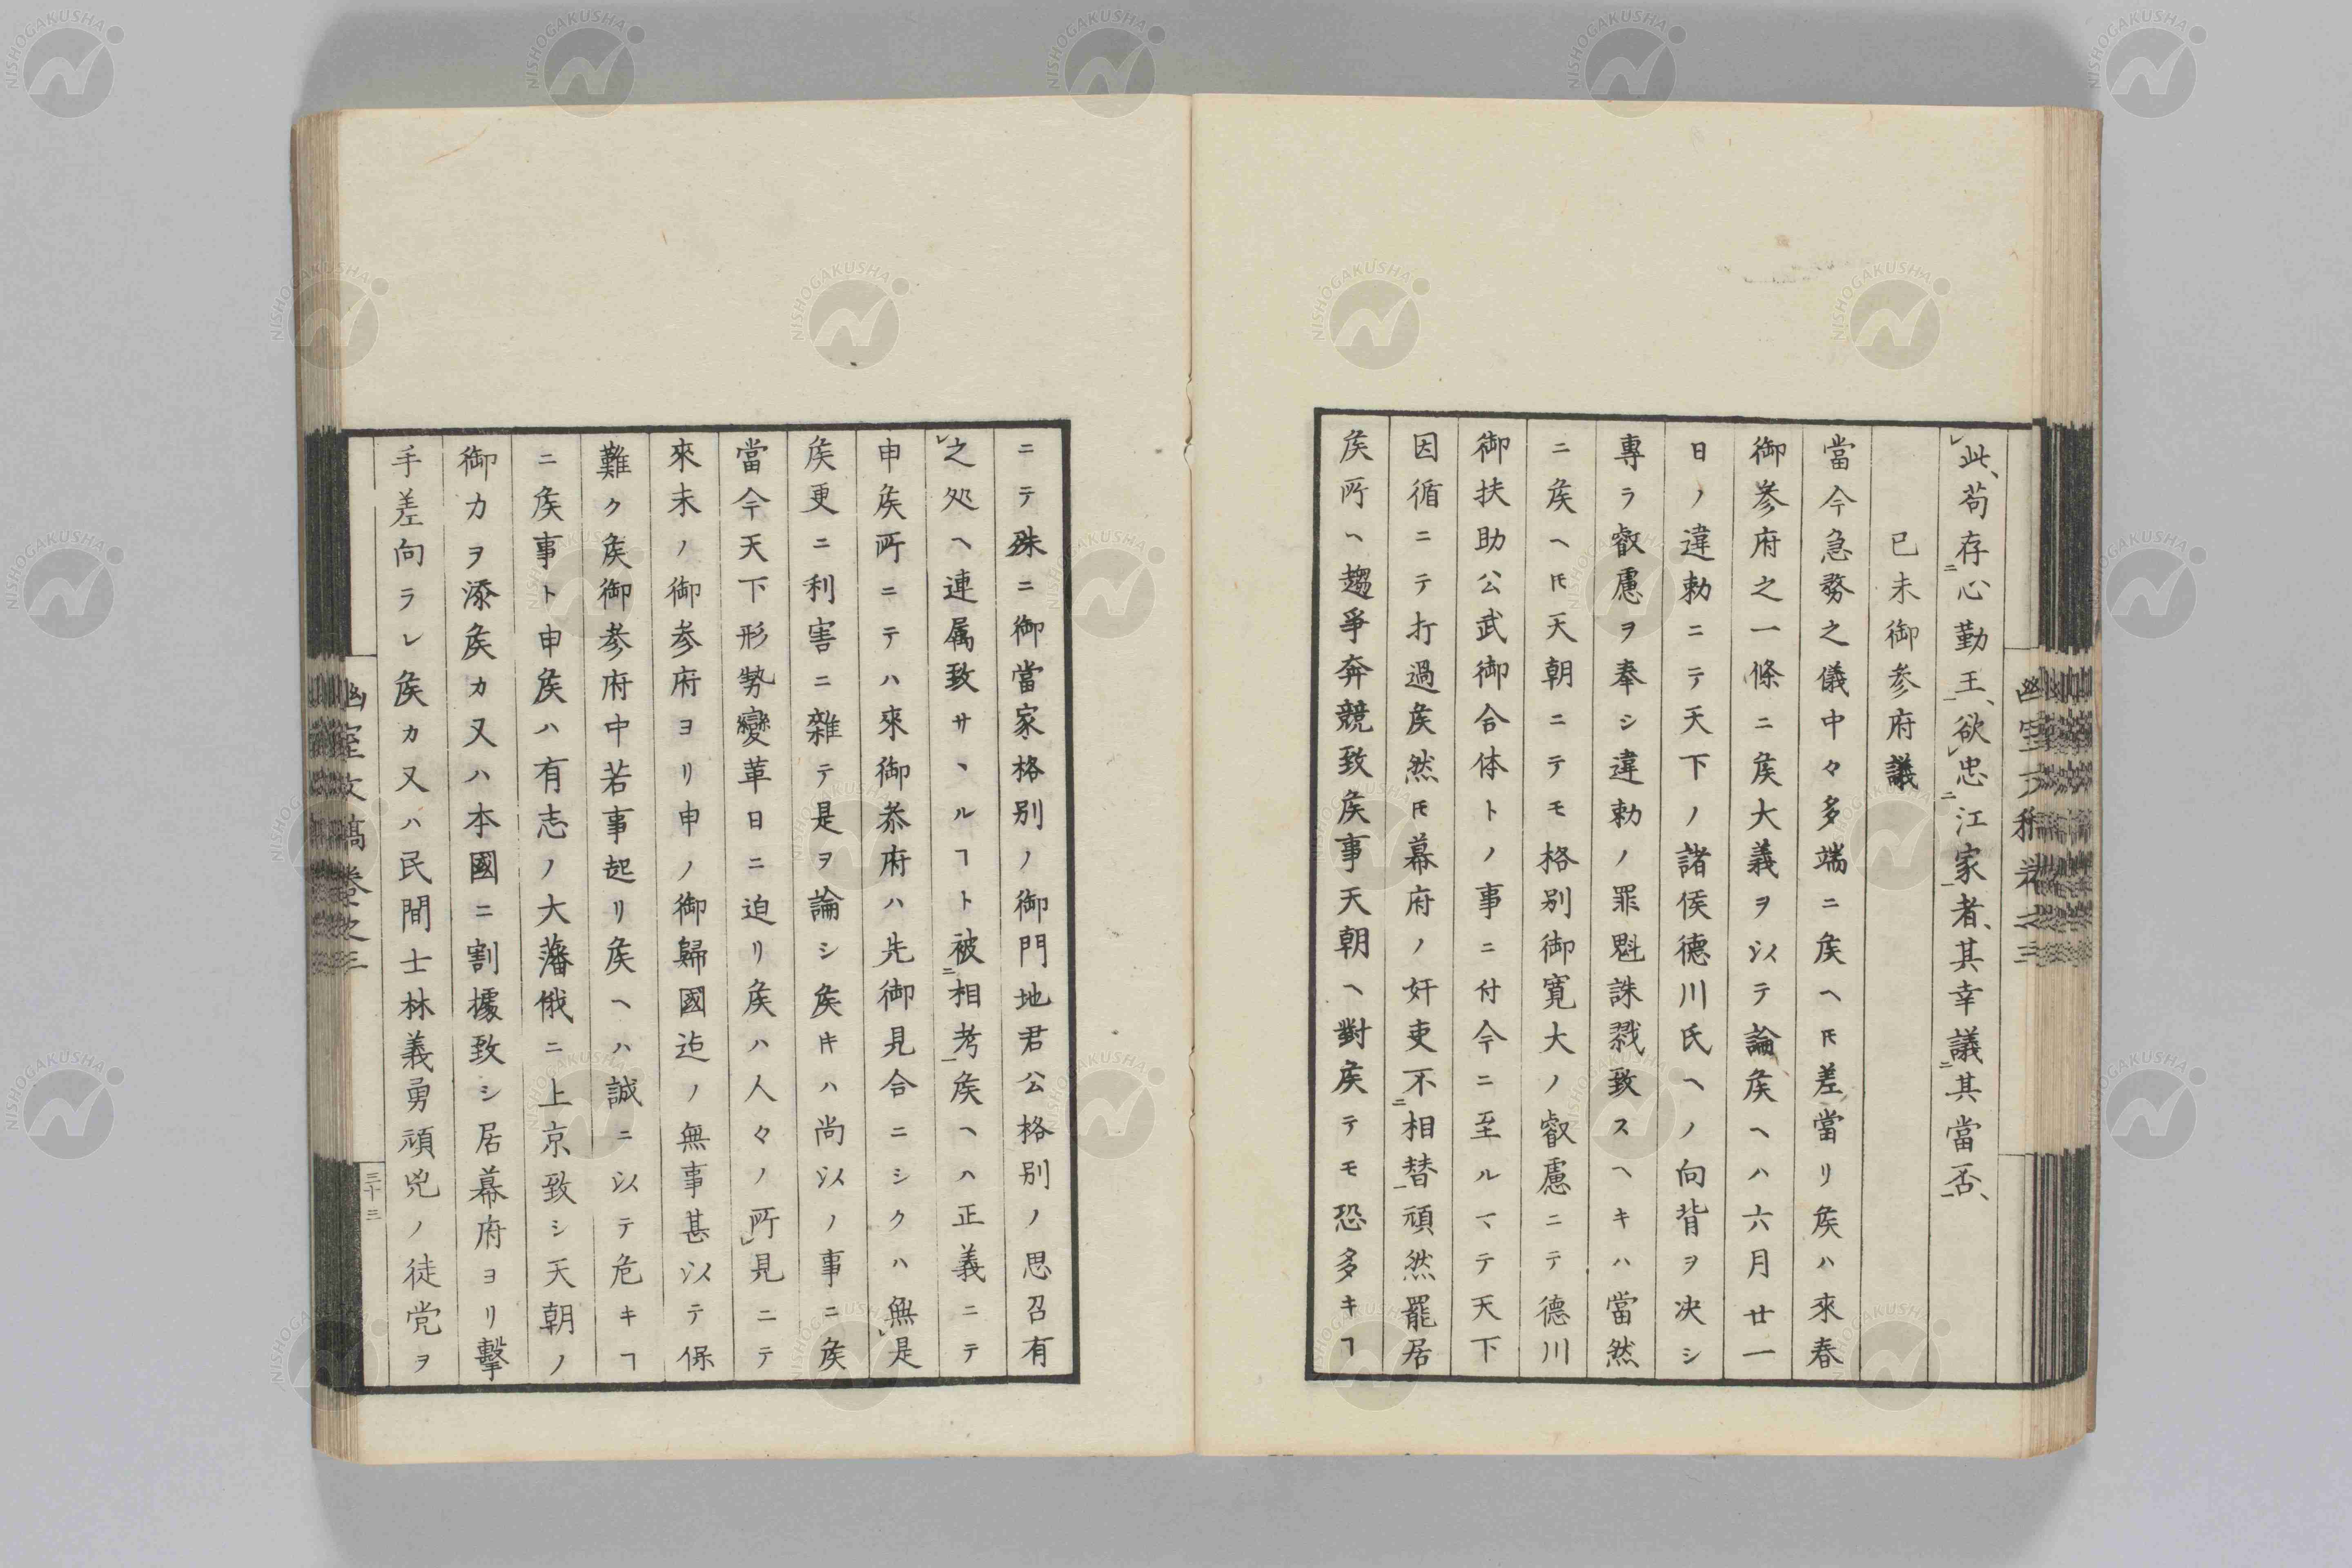 此、苟存心勤王、欲忠江家者、其幸議其當否、
已未御参府議
當今急務之儀中々多端ニ矦ヘ𪜈差當リ矦ハ來春
御参府之一條ニ矦大義ヲ以テ論矦ヘハ六月廿一
日ノ違勅ニテ天下ノ諸侯德川氏ヘノ向背ヲ决シ
專ラ叡慮ヲ奉シ違勅ノ罪魁誅戮致スヘキハ當然
ニ矦ヘ𪜈天朝ニテモ格別御寛大ノ叡慮ニテ德川
御扶助公武御合体トノ事ニ付今ニ至ルマテ天下
因循ニテ打過矦然𪜈幕府ノ奸吏不相替頑然罷居
矦所ヘ趨爭奔競致矦事天朝ヘ對矦テモ恐多キヿ
ニテ殊ニ御當家格別ノ御門地君公格別ノ思召有
之処ヘ連属致サヽルヿト被相考矦ヘハ正義ニテ
申矦所ニテハ來御参府ハ先御見合ニシクハ無是
矦更ニ利害ニ雜テ是ヲ論シ矦㪽ハ尚以ノ事ニ矦
當今天下形勢變革日ニ迫リ矦ハ人々ノ所見ニテ
來未ノ御参府ヨリ申ノ御歸國迄ノ無事甚以テ保
難ク矦御参府中若事起リ矦ヘハ誠ニ以テ危キヿ
ニ矦事ト申矦ハ有志ノ大藩俄ニ上京致シ天朝ノ
御力ヲ添矦カ又ハ本國ニ割據致シ居幕府ヨリ擊
手差向ラレ矦カ又ハ民間士林義勇頑兇ノ徒党ヲ
幽室文稿卷之三
三十三